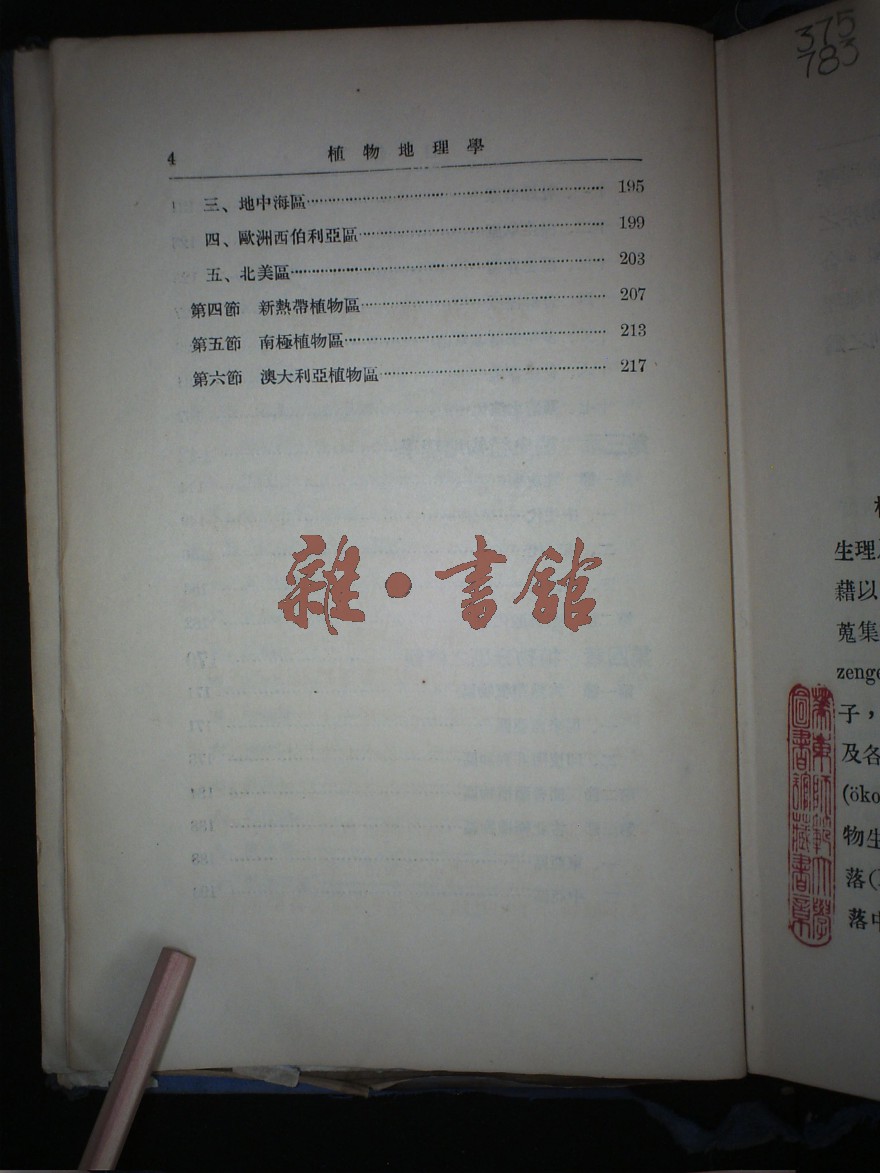 4 植物地理學
三、地中海區 195
四、歐洲西伯利亞區 199
五、北美區 203
第四節 新熱帶植物區 207
第五節 南極植物區 213
第六節 澳大利亞植物區 217
雜·書館
375
783
生理
藉以
蒐集
zenge
子，
及各
(öko
物生
落(
落中
華東師範大學
圖書館藏書章